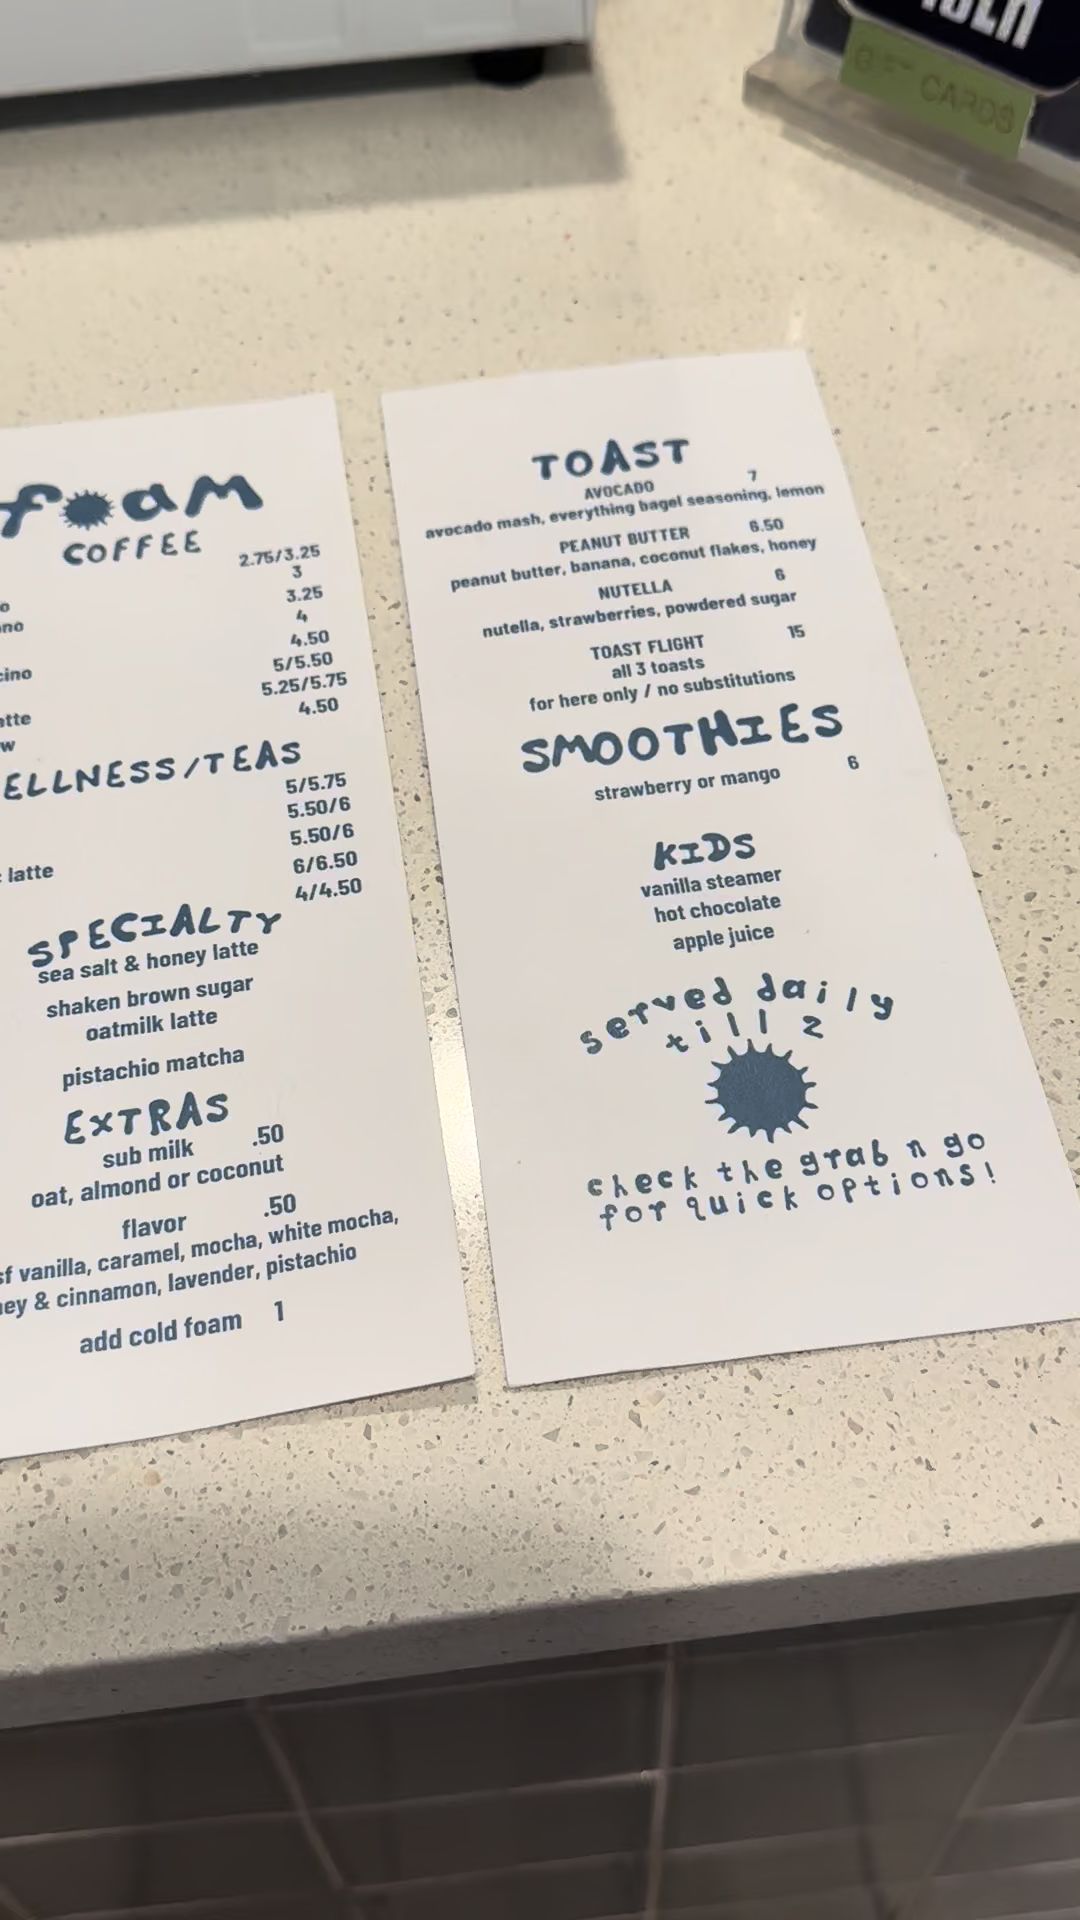 GIFT CARDS
foam
COFFEE
2.75/3.25
3
3.25
4
4.50
5/5.50
5.25/5.75
4.50
ELLNESS/TEAS
5/5.75
5.50/6
5.50/6
latte 6/6.50
4/4.50
SPECIALTY
sea salt & honey latte
shaken brown sugar
oatmilk latte
pistachio matcha
EXTRAS
sub milk .50
oat, almond or coconut
flavor .50
sf vanilla, caramel, mocha, white mocha,
ey & cinnamon, lavender, pistachio
add cold foam 1
TOAST
AVOCADO 7
avocado mash, everything bagel seasoning, lemon
PEANUT BUTTER 6.50
peanut butter, banana, coconut flakes, honey
NUTELLA 6
nutella, strawberries, powdered sugar
TOAST FLIGHT 15
all 3 toasts
for here only / no substitutions
SMOOTHIES
strawberry or mango 6
KIDS
vanilla steamer
hot chocolate
apple juice
served daily
till 2
check the grab n go
for quick options!